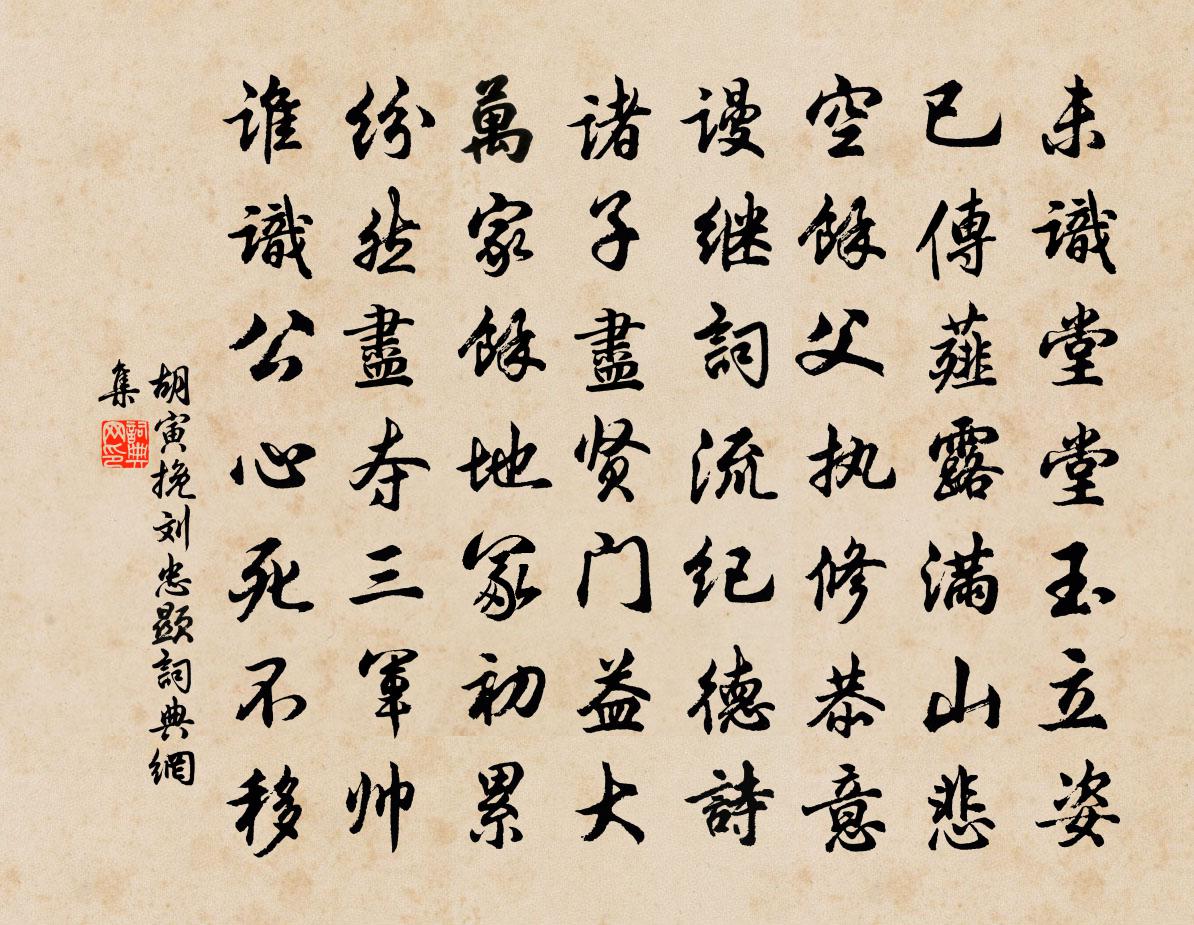 未識堂堂玉立姿
已傳薤露满山悲
空餘父执修恭意
谩继詞流纪德詩
诸子盡贤门益大
萬家餘地冢初累
纷然盡夺三軍帅
谁識公心死不移
胡寅挽刘忠顯詞典網
集
詞典
网印